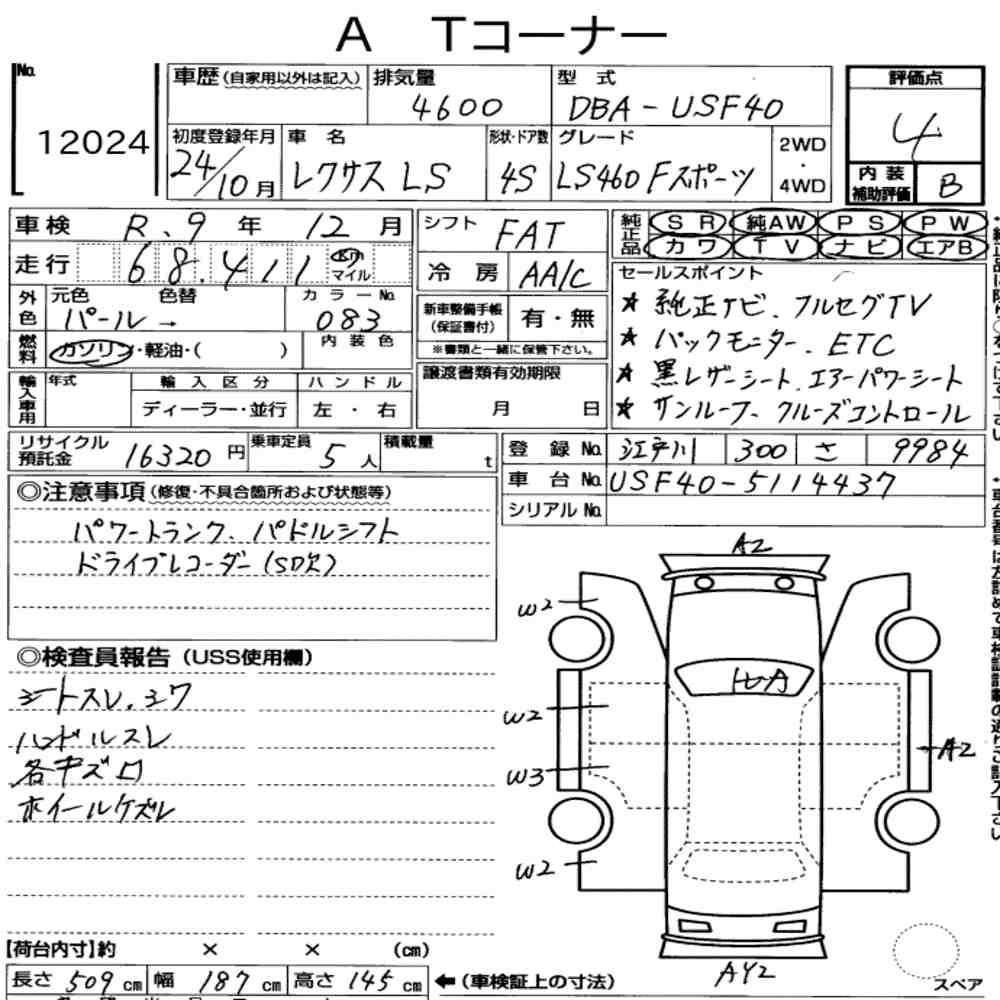 A Tコーナー
No. 12024
車歴(自家用以外は記入) 排気量 4600 型式 DBA-USF40
評価点 4
初度登録年月 24/10月 車名 レクサス LS 形状・ドア数 4S グレード LS460 Fスポーツ 2WD・4WD
内装補助評価 B
車検 R.9年 12月 シフト FAT
純正品 SR 純AW PS PW カワ TV ナビ エアB
走行 68.411 Km マイル 冷房 AA/C
セールスポイント
★ 純正ナビ、フルセグTV
★ バックモニター、ETC
★ 黒レザーシート、エアーパワーシート
★ サンルーフ、クルーズコントロール
外色 元色 パール → 色替 カラーNo. 083
新車整備手帳(保証書付) 有・無
※書類と一緒に保管下さい。
燃料 ガソリン・軽油・( ) 内装色
輸入車用 年式 輸入区分 ハンドル
ディーラー・並行 左・右
譲渡書類有効期限
月 日
リサイクル預託金 16320円 乗車定員 5人 積載量 t
登録No. 江戸川 300 さ 9984
車台No. USF40-5114437
シリアルNo.
◎注意事項(修復・不具合箇所および状態等)
パワートランク、パドルシフト
ドライブレコーダー(SD欠)
◎検査員報告(USS使用欄)
シートスレ、シワ
ハンドルスレ
各キズ凹
ホイールケズレ
A2
W2
W2
W3
W2
A2
AY2
スペア
【荷台内寸】約 × × (cm)
長さ 509cm 幅 187cm 高さ 145cm ←(車検証上の寸法)